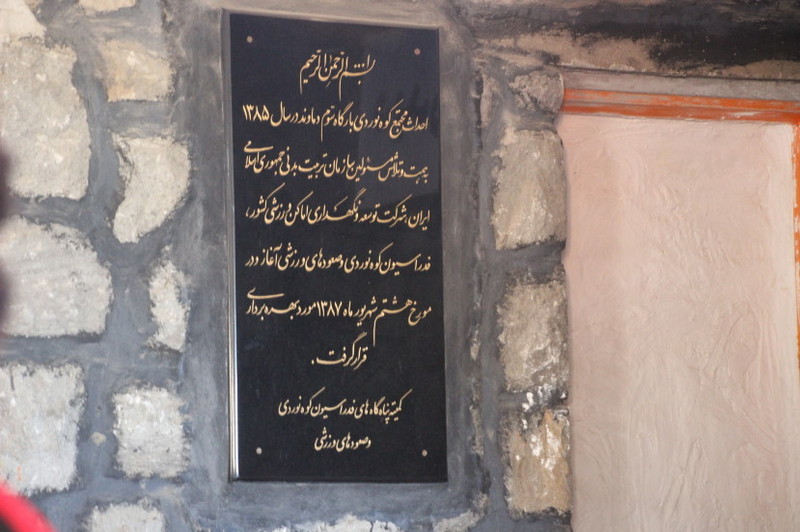 بسم الله الرحمن الرحیم
احداث مجتمع کوه نوردی بارگاه سوم دماوند در سال ۱۳۸۵
به همت و تلاش مسئولین سازمان تربیت بدنی جمهوری اسلامی
ایران، شرکت توسعه و نگهداری اماکن ورزشی کشور،
فدراسیون کوه نوردی و صعودهای ورزشی آغاز و در
مورخ هشتم شهریور ماه ۱۳۸۷ مورد بهره برداری
قرار گرفت.
کمیته پناهگاه های فدراسیون کوه نوردی
و صعودهای ورزشی